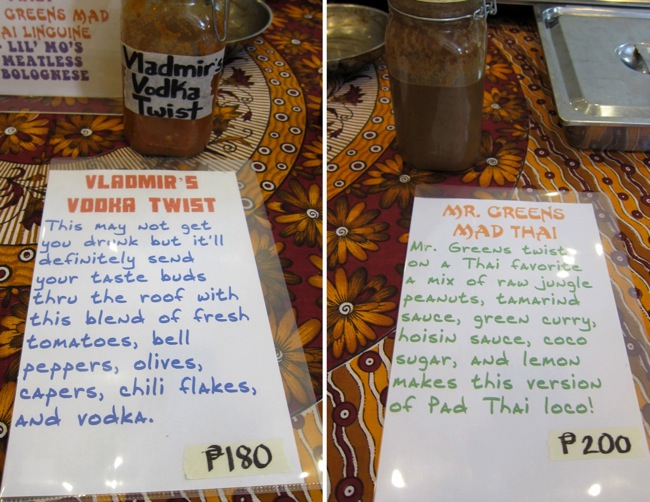 GREENS MAD
AI LINGUINE
LIL' MO'S
MEATLESS
BOLOGNESE
Vladmir's
Vodka
Twist
VLADMIR'S
VODKA TWIST
This may not get
you drunk but it'll
definitely send
your taste buds
thru the roof with
this blend of fresh
tomatoes, bell
peppers, olives,
capers, chili flakes,
and vodka.
₱180
MR. GREENS
MAD THAI
Mr. Greens twists
on a Thai favorite
a mix of raw jungle
peanuts, tamarind
sauce, green curry,
hoisin sauce, coco
sugar, and lemon
makes this version
of Pad Thai loco!
₱200